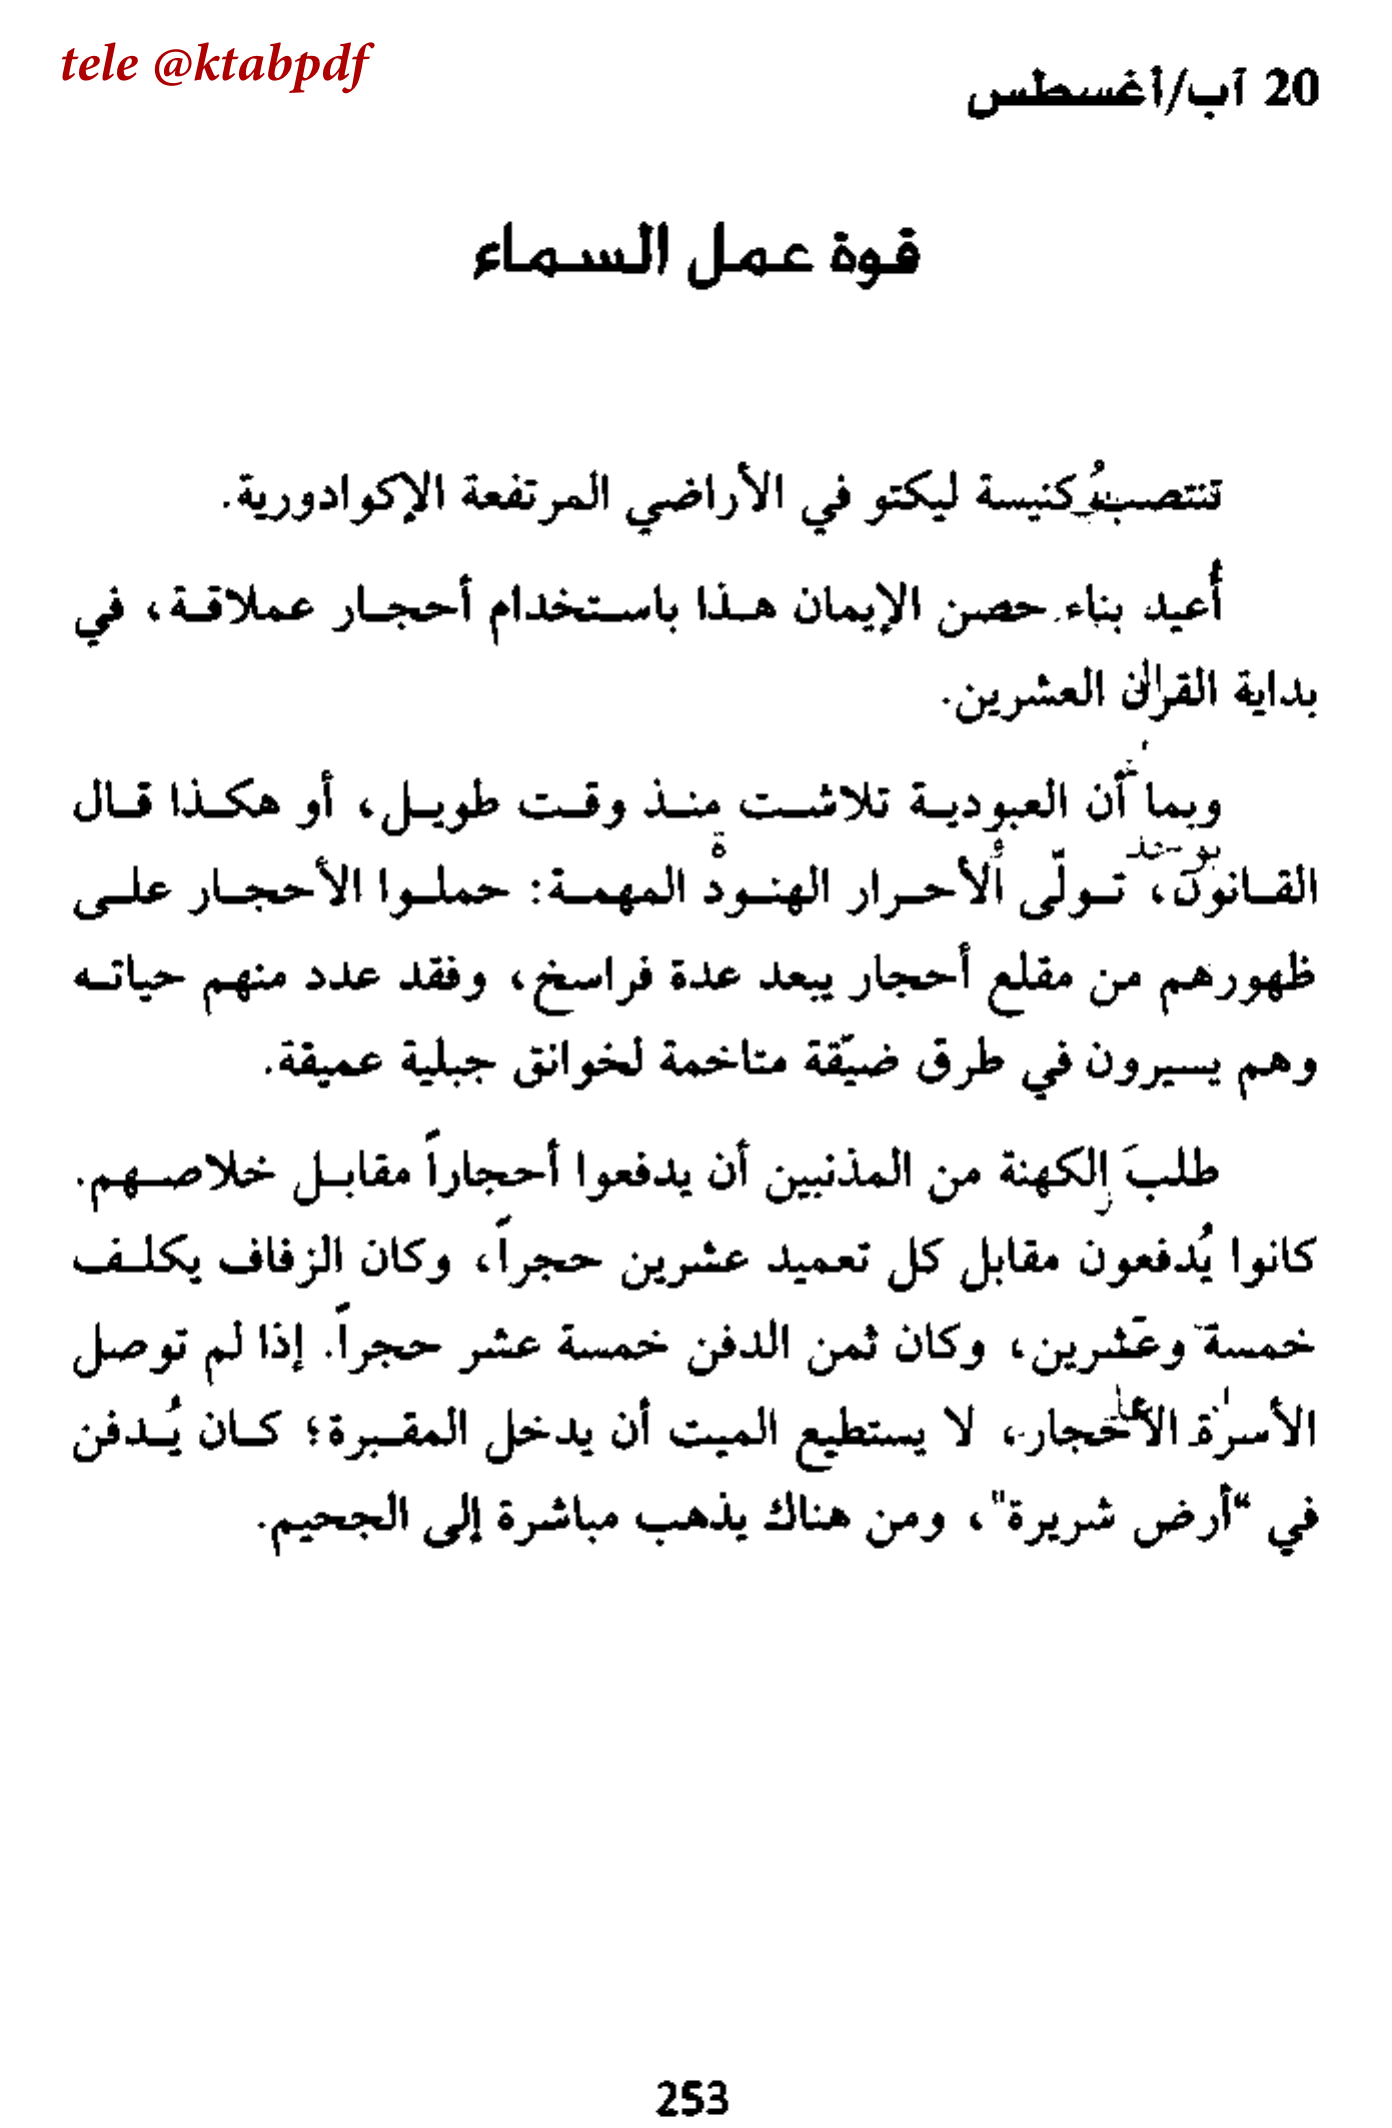 tele @ktabpdf
20 آب/أغسطس
قوة عمل السماء
تنتصب كنيسة ليكتو في الأراضي المرتفعة الإكوادورية.
أُعيد بناء حصن الإيمان هذا باستخدام أحجار عملاقة، في
بداية القرن العشرين.
وبما أن العبودية تلاشت منذ وقت طويل، أو هكذا قال
القانون، تولّى الأحرار الهنود المهمة: حملوا الأحجار على
ظهورهم من مقلع أحجار يبعد عدة فراسخ، وفقد عدد منهم حياته
وهم يسيرون في طرق ضيّقة متاخمة لخوانق جبلية عميقة.
طلبَ الكهنة من المذنبين أن يدفعوا أحجاراً مقابل خلاصهم.
كانوا يُدفعون مقابل كل تعميد عشرين حجراً، وكان الزفاف يكلف
خمسة وعشرين، وكان ثمن الدفن خمسة عشر حجراً. إذا لم توصل
الأسرة الأحجار، لا يستطيع الميت أن يدخل المقبرة؛ كان يُدفن
في "أرض شريرة"، ومن هناك يذهب مباشرة إلى الجحيم.
253